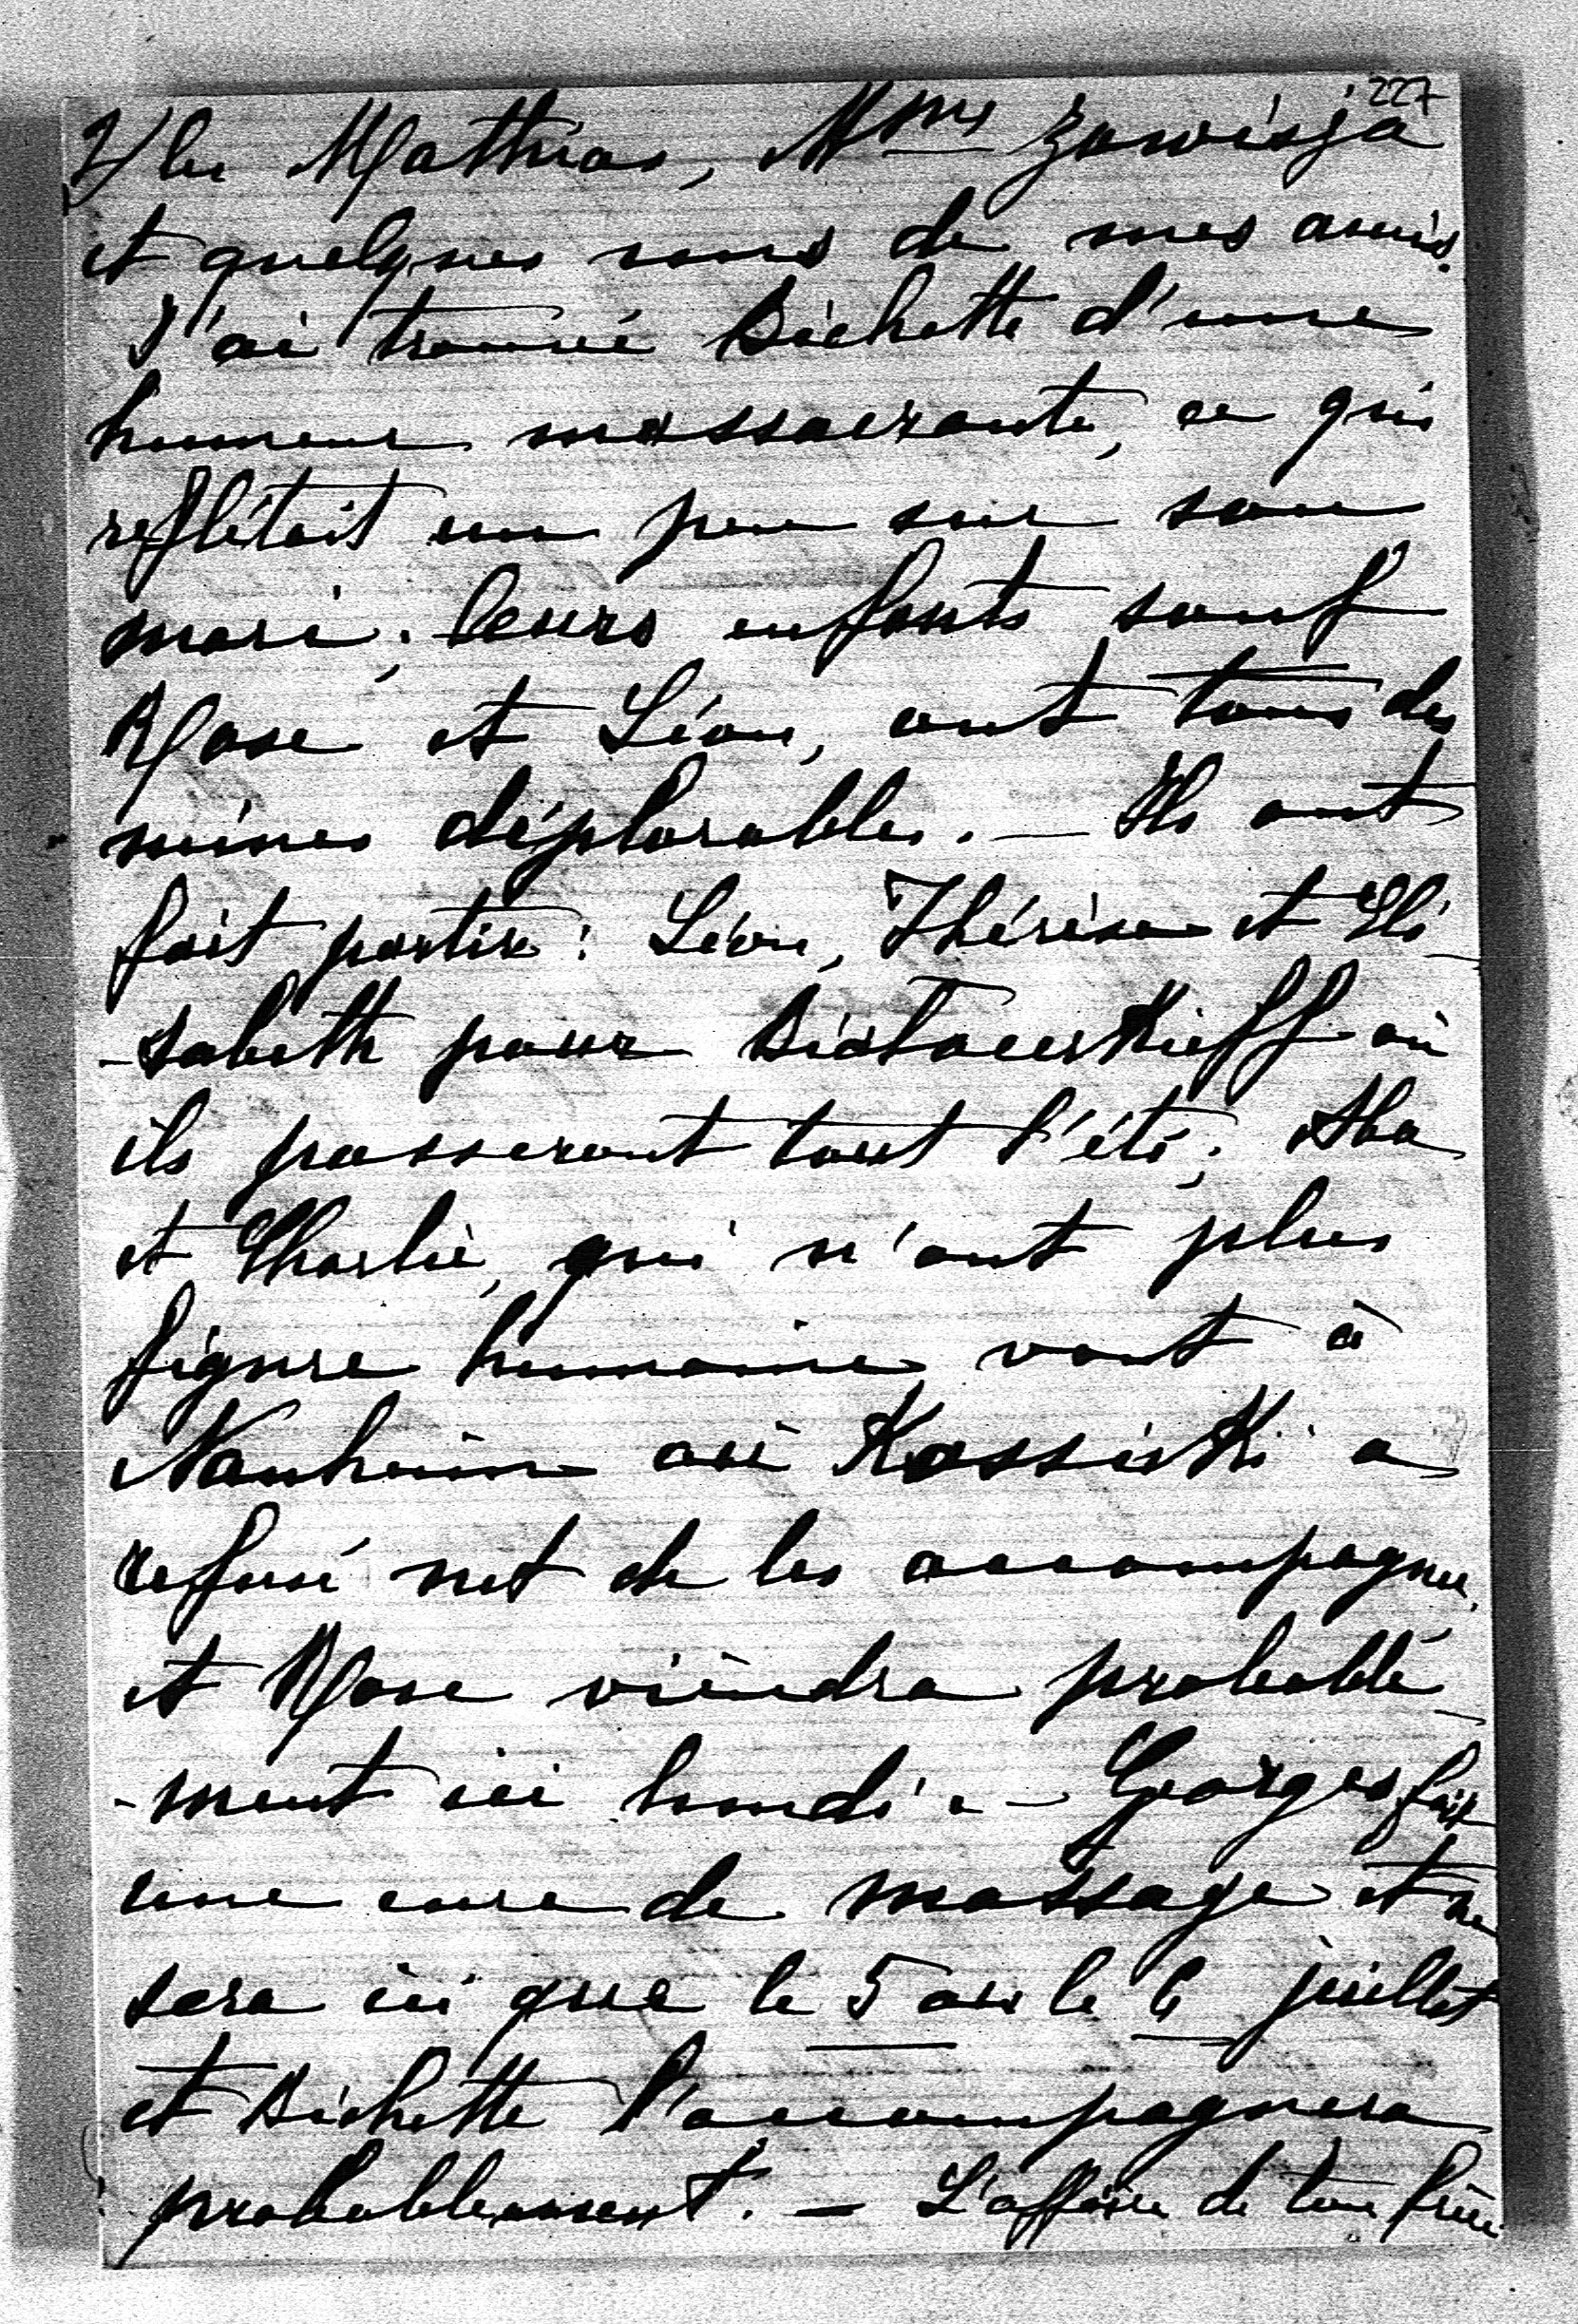 227
2/ les Mathias, Mme Zawisza
et quelques uns de mes amis.
J'ai trouvé Bichette d'une
humeur massacrante, ce qui
reflétait un peu sur son
mari; leurs enfants sauf
Rose et Léon, ont tous des
mines déplorables. — Ils ont
fait partir: Léon, Thérèse et Eli-
-sabeth pour Biatocerkieff où
ils passeront tout l'été; Aba
et Charlie, qui n'ont plus
figure humaine vont à
Nauheim où Kossiski a
refusé net de les accompagner,
et Rose viendra probable-
-ment ici lundi. — Georges fait
une cure de massage et ne
sera ici que le 5 ou le 6 juillet
et Bichette l'accompagnera
probablement. — L'affaire de ton frère